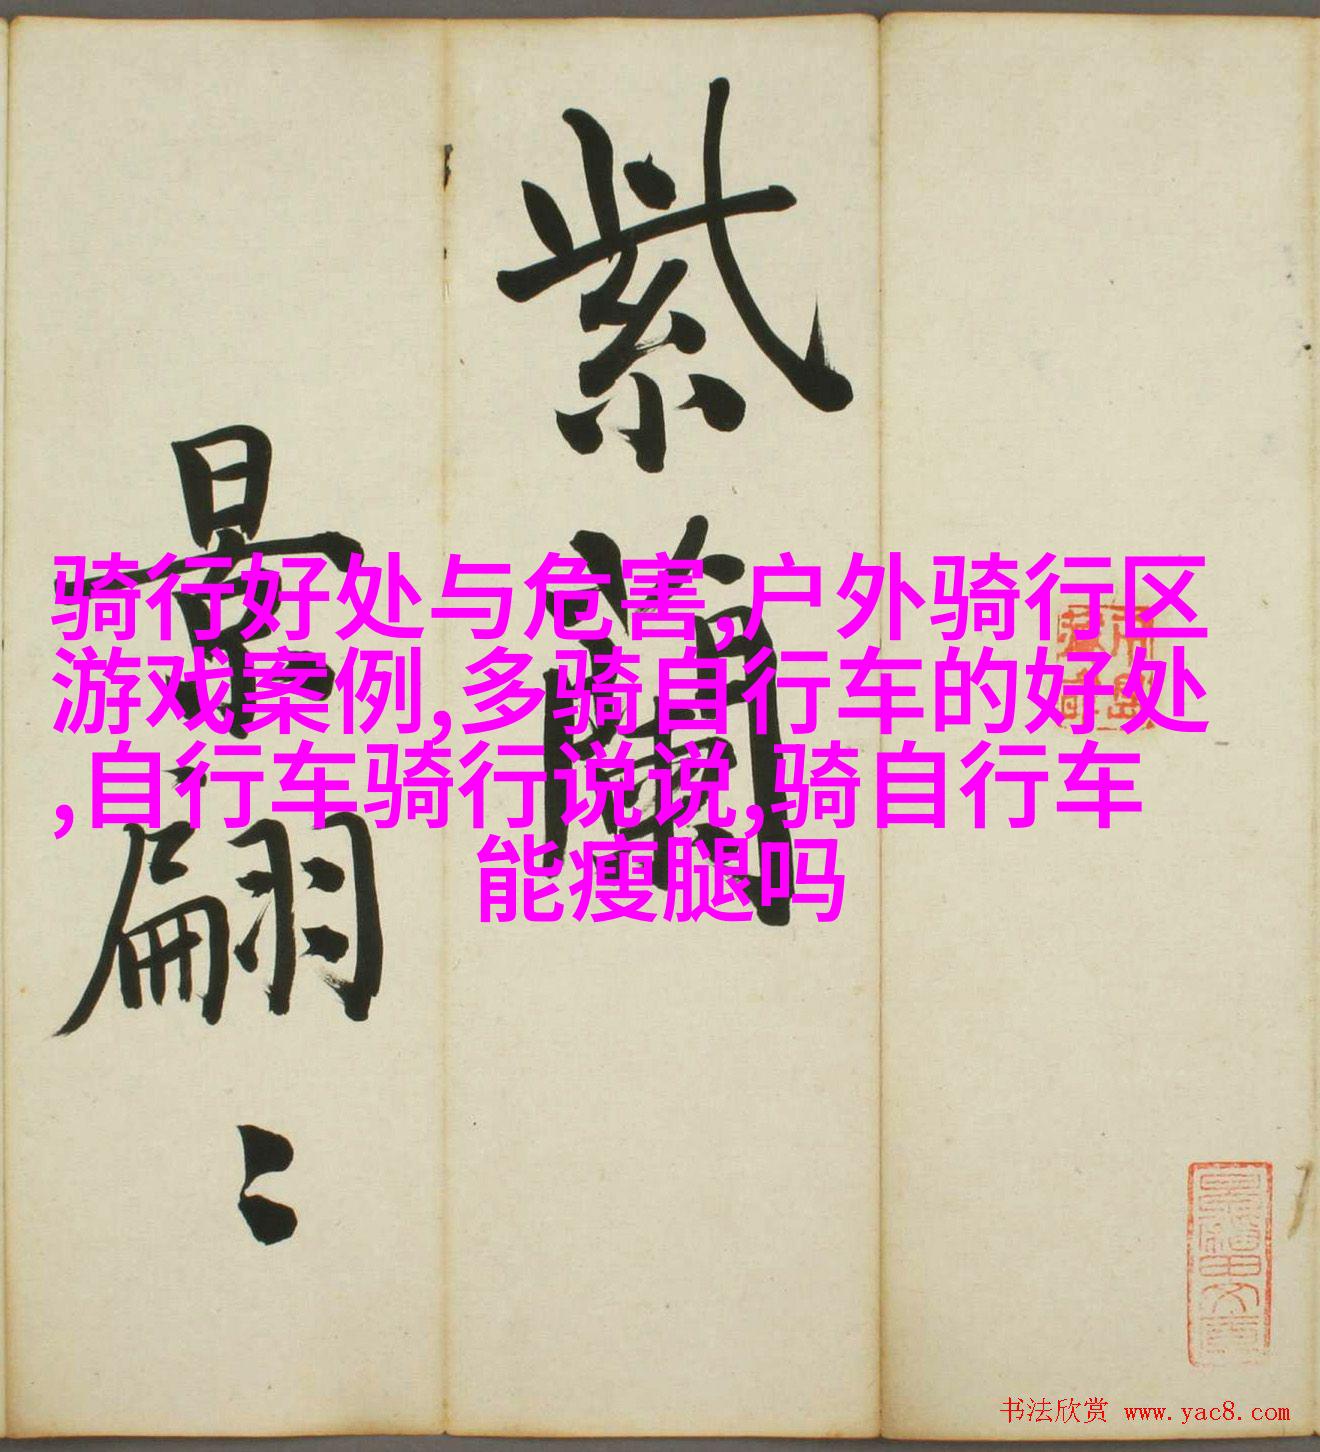 紫蘭
最翩〻
骑行好处与危害,户外骑行区
游戏案例,多骑自行车的好处
,自行车骑行说说,骑自行车
能瘦腿吗
书法欣赏 www.yac8.com